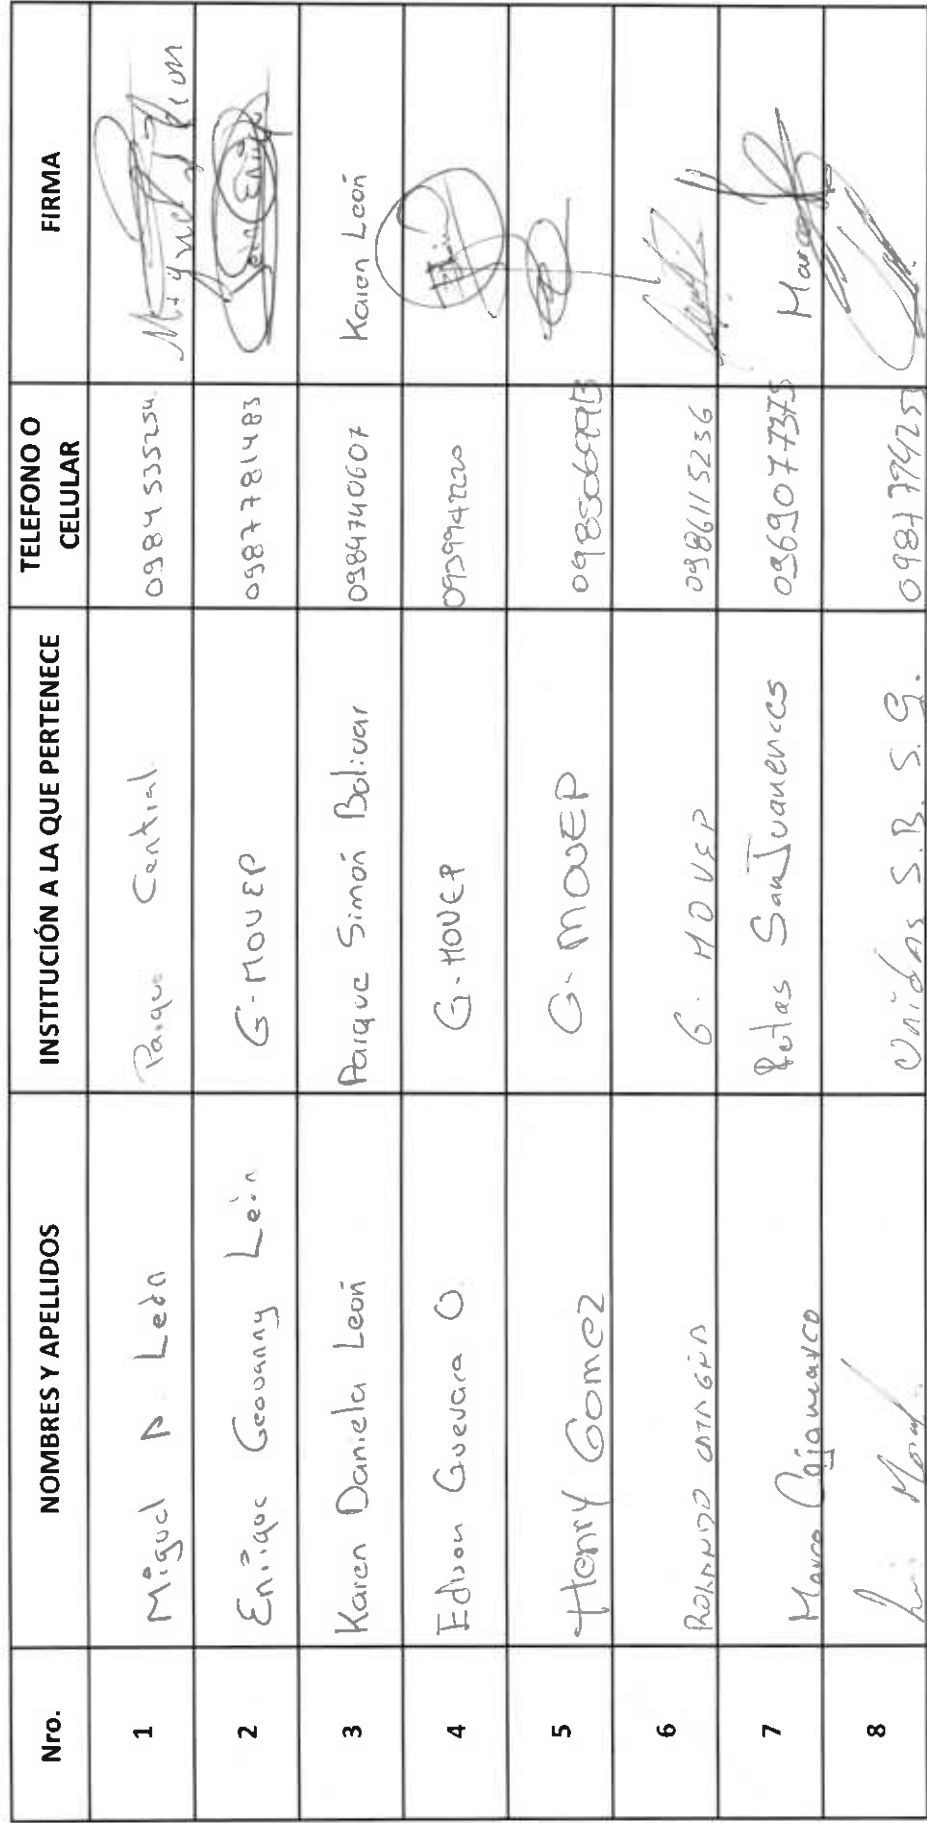 Nro. NOMBRES Y APELLIDOS INSTITUCIÓN A LA QUE PERTENECE TELEFONO O CELULAR FIRMA
1 Miguel A. León Parque Central 0984535254 Miguel León
2 Enrique Geovanny León G-MOVEP 0987781483
3 Karen Daniela León Parque Simón Bolivar 0984740607 Karen León
4 Edison Guevara O. G-MOVEP 0939942220
5 Henry Gomez G-MOVEP
6 G. MOVEP 0986115236
7 Marco Cajamarco Rutas SanJuanences 0969077375 Marco
8 Luis Unidos S.B. S. G.